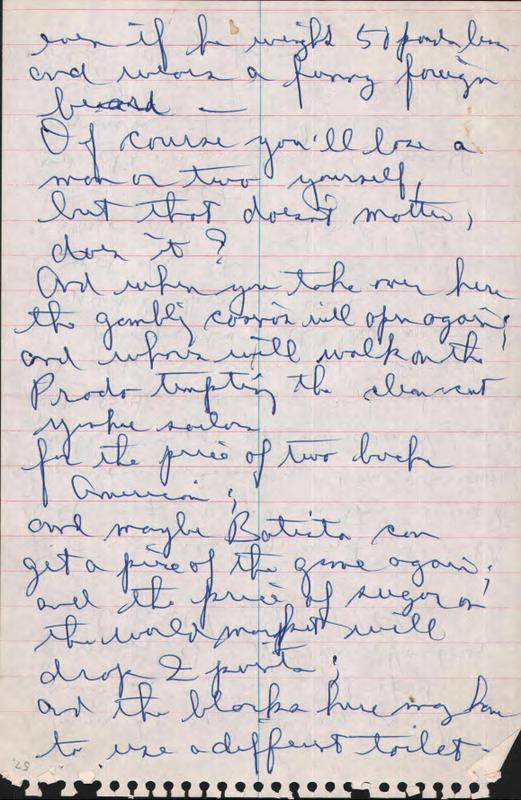 even if he weighs 50 pounds less
and wears a funny foreign
beard —
Of course you'll lose a
man or two yourself,
but that doesn't matter,
does it?
And when you take over here
the gambling casinos will open again;
and whores will walk on the
Prado tempting the clean cut
yankee sailors
for the price of two bucks
American;
and maybe Batista can
get a piece of the game again;
and the price of sugar on
the world market will
drop 2 points;
and the blacks here may have
to use a different toilet -